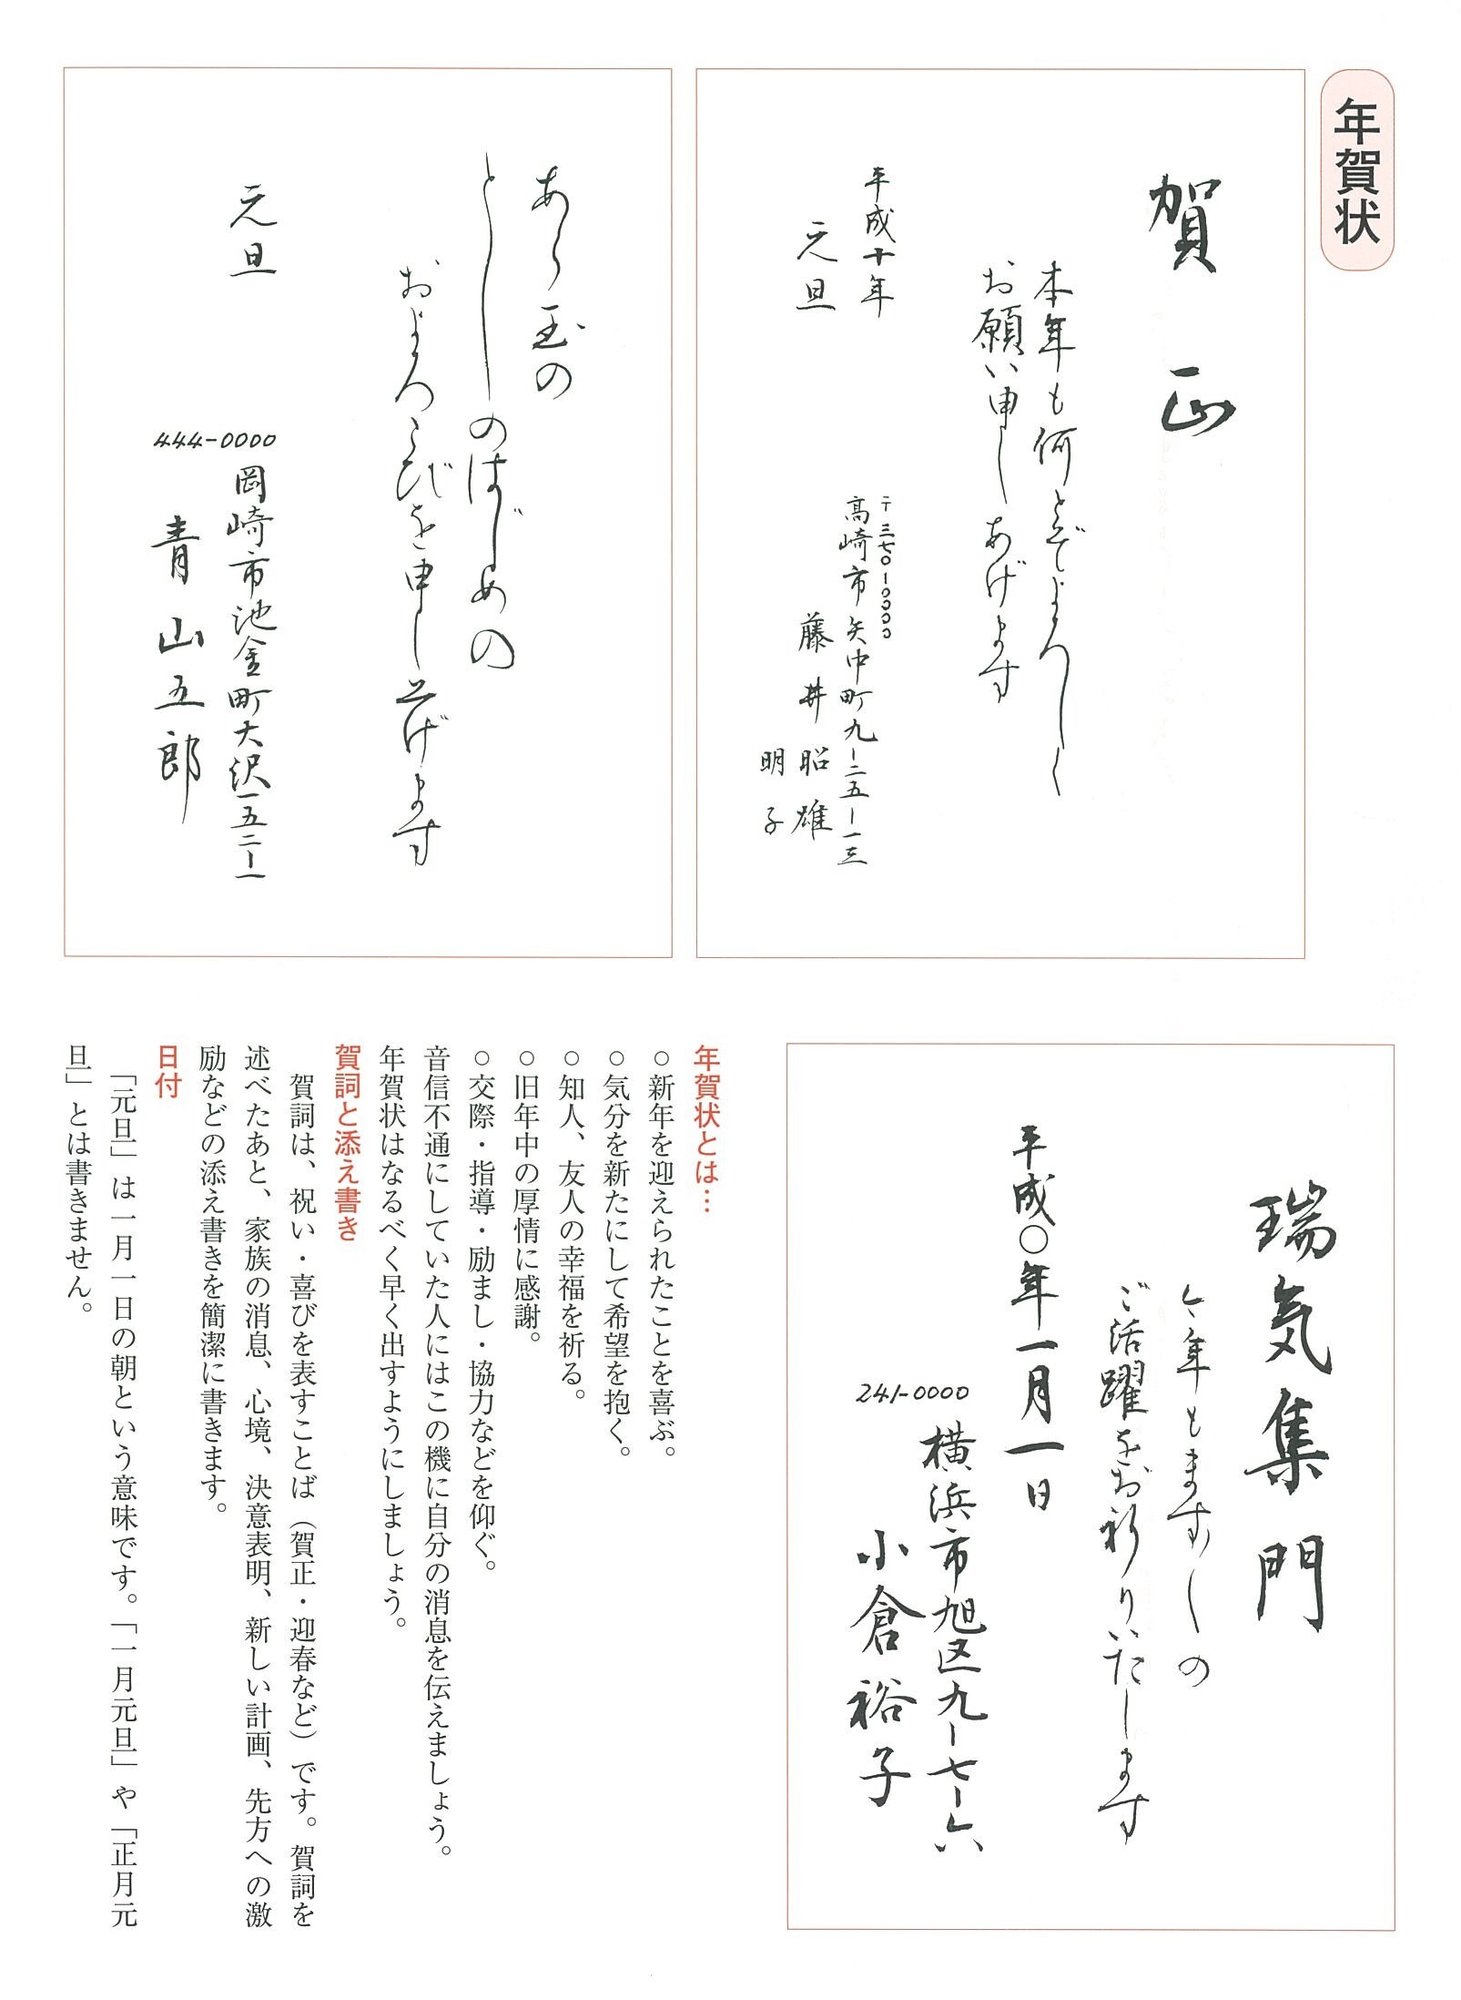 年賀状
賀正
本年も何とぞよろしく
お願い申しあげます
平成十年
元旦
〒三七〇-〇〇〇〇
高崎市矢中町九-二五-一三
藤井昭雄
明子
あら玉の
としのはじめの
およろこびを申し上げます
元旦
444-0000
岡崎市池金町大沢一五二-一
青山五郎
瑞気集門
今年もますますの
ご活躍をお祈りいたします
平成〇年一月一日
241-0000
横浜市旭区九-七-六
小倉裕子
年賀状とは…
○新年を迎えられたことを喜ぶ。
○気分を新たにして希望を抱く。
○知人、友人の幸福を祈る。
○旧年中の厚情に感謝。
○交際・指導・励まし・協力などを仰ぐ。
音信不通にしていた人にはこの機に自分の消息を伝えましょう。
年賀状はなるべく早く出すようにしましょう。
賀詞と添え書き
賀詞は、祝い・喜びを表すことば（賀正・迎春など）です。賀詞を
述べたあと、家族の消息、心境、決意表明、新しい計画、先方への激
励などの添え書きを簡潔に書きます。
日付
「元旦」は一月一日の朝という意味です。「一月元旦」や「正月元
旦」とは書きません。